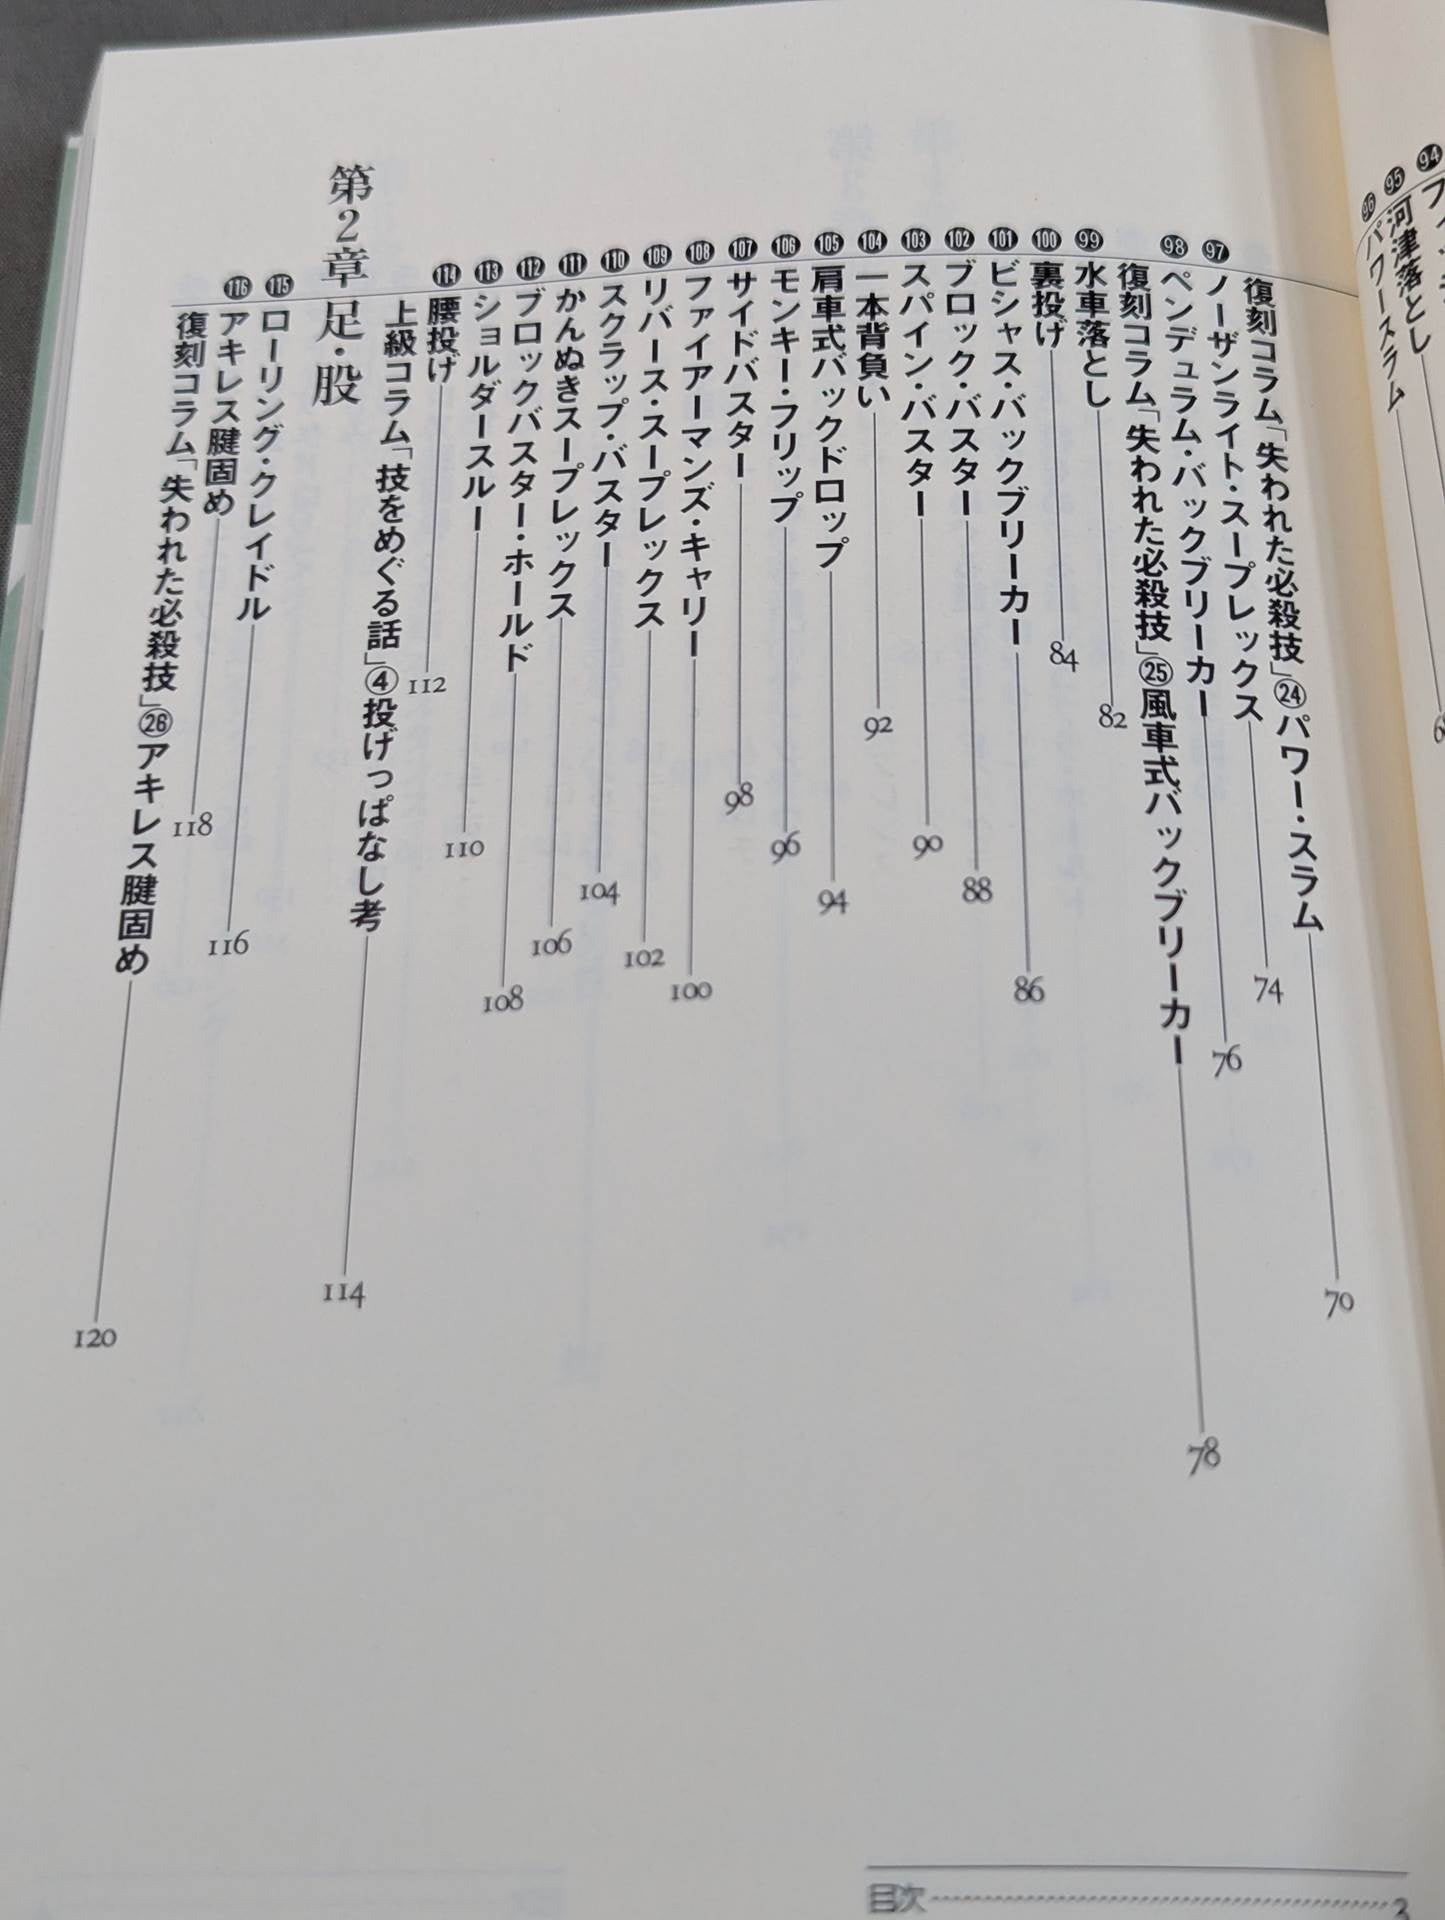 95 河津落とし
96 パワースラム
復刻コラム「失われた必殺技」㉔パワー・スラム 70
97 ノーザンライト・スープレックス 74
98 ペンデュラム・バックブリーカー 76
復刻コラム「失われた必殺技」㉕風車式バックブリーカー 78
99 水車落とし 82
100 裏投げ 84
101 ビシャス・バックブリーカー 86
102 ブロック・バスター 88
103 スパイン・バスター 90
104 一本背負い 92
105 肩車式バックドロップ 94
106 モンキー・フリップ 96
107 サイドバスター 98
108 ファイアーマンズ・キャリー 100
109 リバース・スープレックス 102
110 スクラップ・バスター 104
111 かんぬきスープレックス 106
112 ブロックバスター・ホールド 108
113 ショルダースルー 110
114 腰投げ 112
上級コラム「技をめぐる話」④投げっぱなし考 114
第2章 足・股
115 ローリング・クレイドル 116
116 アキレス腱固め 118
復刻コラム「失われた必殺技」㉖アキレス腱固め 120
目次 3